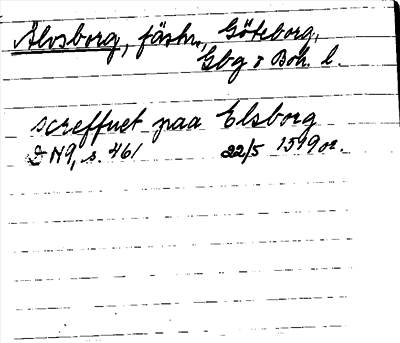 Älvsborg, fästn, Göteborg,
Gbg o Boh. l.
screffuet paa Elsborg
DN 9, s. 461 22/5 1519 or.